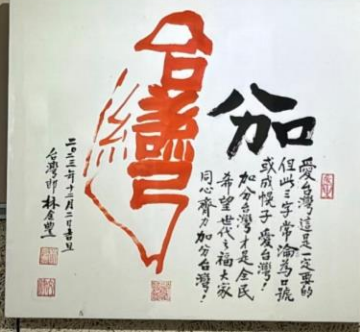 加分
台灣
愛台灣這是一定要的
但此三字常淪為口號
或成幌子愛台灣！
加分台灣才是全民
希望世代之福大家
同心齊力加分台灣！
二〇二三年十二月二日
台灣郎 林金豐